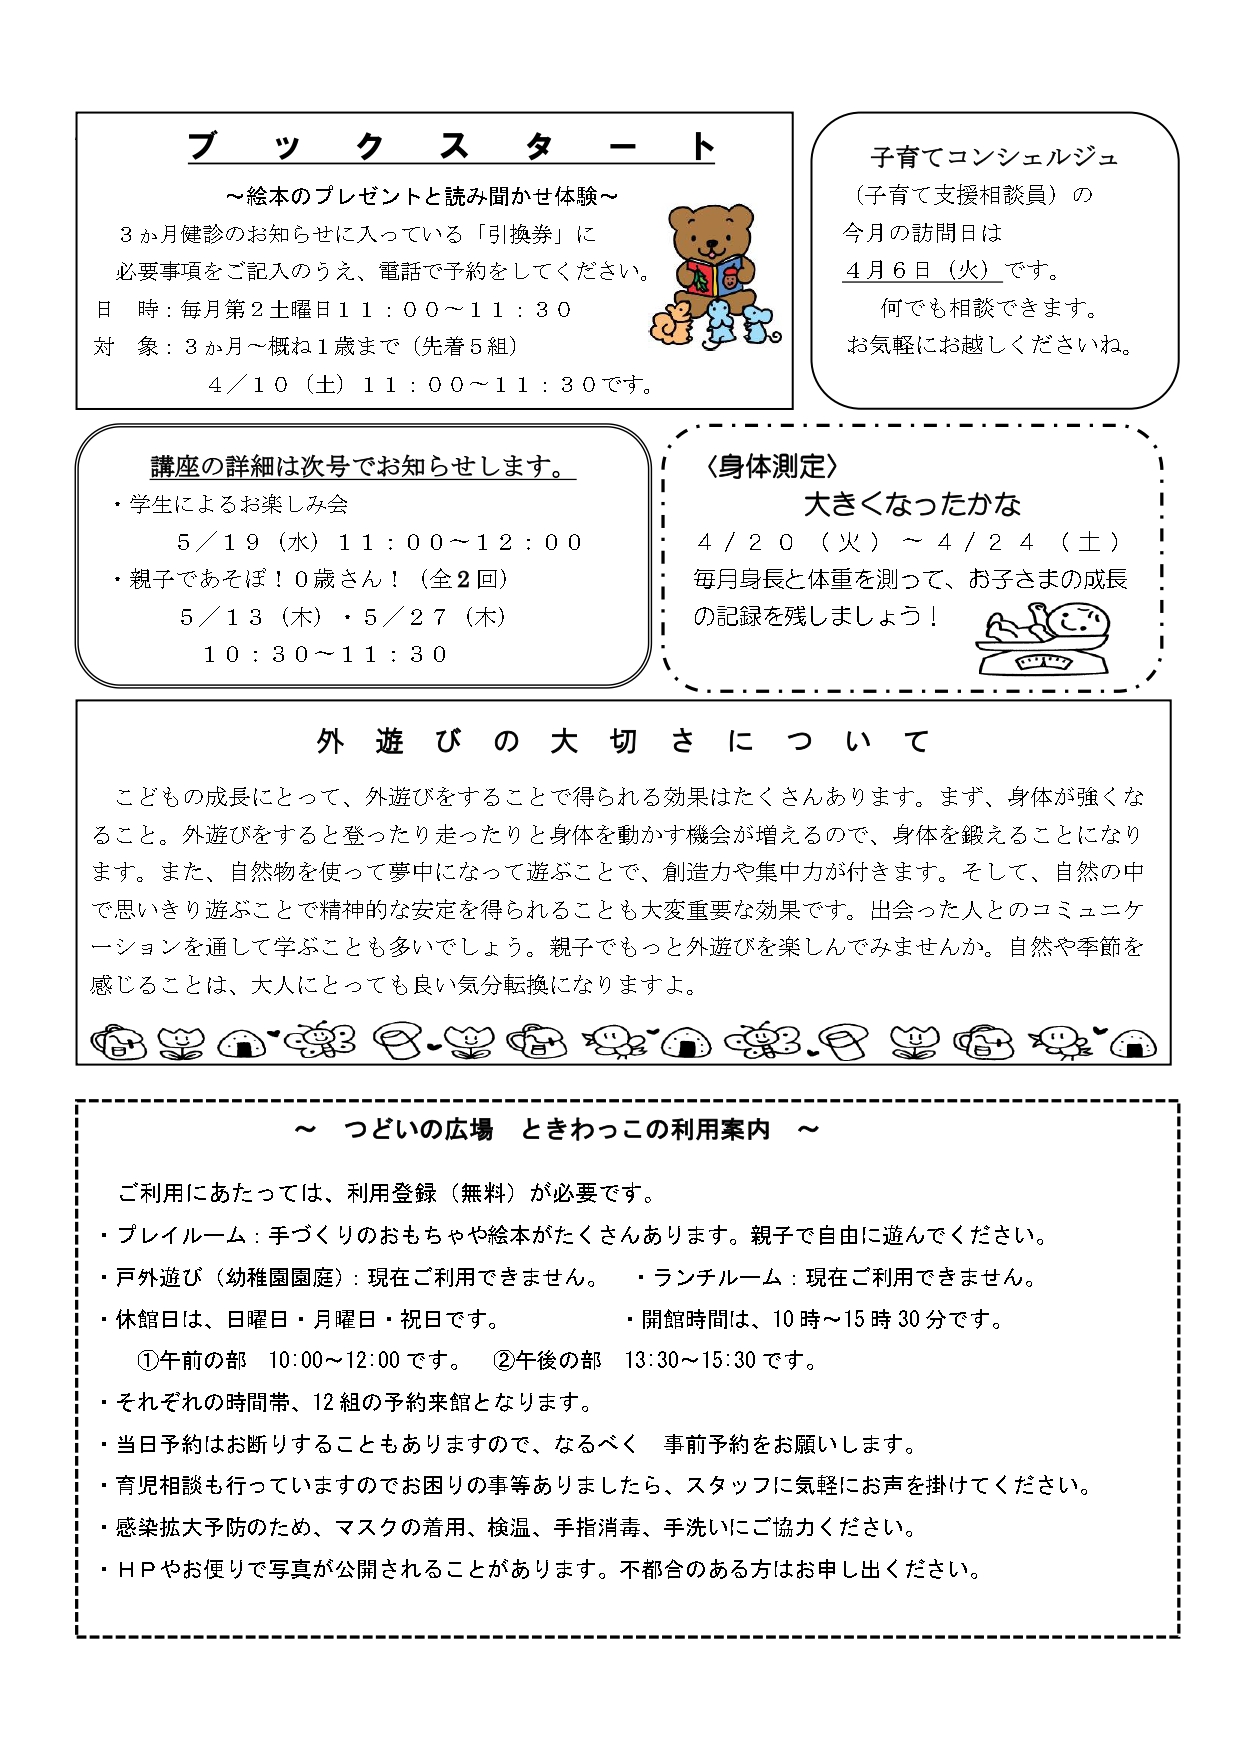 ブックスタート
～絵本のプレゼントと読み聞かせ体験～
３か月健診のお知らせに入っている「引換券」に
必要事項をご記入のうえ、電話で予約をしてください。
日　時：毎月第２土曜日１１：００～１１：３０
対　象：３か月～概ね１歳まで（先着５組）
４／１０（土）１１：００～１１：３０です。
子育てコンシェルジュ
（子育て支援相談員）の
今月の訪問日は
４月６日（火）です。
何でも相談できます。
お気軽にお越しくださいね。
講座の詳細は次号でお知らせします。
・学生によるお楽しみ会
５／１９（水）１１：００～１２：００
・親子であそぼ！０歳さん！（全２回）
５／１３（木）・５／２７（木）
１０：３０～１１：３０
〈身体測定〉
大きくなったかな
４/２０（火）～４/２４（土）
毎月身長と体重を測って、お子さまの成長
の記録を残しましょう！
外遊びの大切さについて
こどもの成長にとって、外遊びをすることで得られる効果はたくさんあります。まず、身体が強くな
ること。外遊びをすると登ったり走ったりと身体を動かす機会が増えるので、身体を鍛えることになり
ます。また、自然物を使って夢中になって遊ぶことで、創造力や集中力が付きます。そして、自然の中
で思いきり遊ぶことで精神的な安定を得られることも大変重要な効果です。出会った人とのコミュニケ
ーションを通して学ぶことも多いでしょう。親子でもっと外遊びを楽しんでみませんか。自然や季節を
感じることは、大人にとっても良い気分転換になりますよ。
～　つどいの広場　ときわっこの利用案内　～
ご利用にあたっては、利用登録（無料）が必要です。
・プレイルーム：手づくりのおもちゃや絵本がたくさんあります。親子で自由に遊んでください。
・戸外遊び（幼稚園園庭）：現在ご利用できません。　・ランチルーム：現在ご利用できません。
・休館日は、日曜日・月曜日・祝日です。　・開館時間は、10時～15時30分です。
①午前の部　10:00～12:00です。　②午後の部　13:30～15:30です。
・それぞれの時間帯、12組の予約来館となります。
・当日予約はお断りすることもありますので、なるべく　事前予約をお願いします。
・育児相談も行っていますのでお困りの事等ありましたら、スタッフに気軽にお声を掛けてください。
・感染拡大予防のため、マスクの着用、検温、手指消毒、手洗いにご協力ください。
・ＨＰやお便りで写真が公開されることがあります。不都合のある方はお申し出ください。